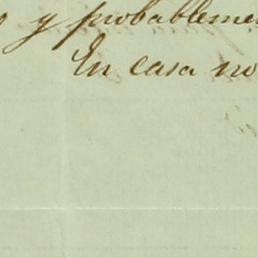 y probablemen
En casa no